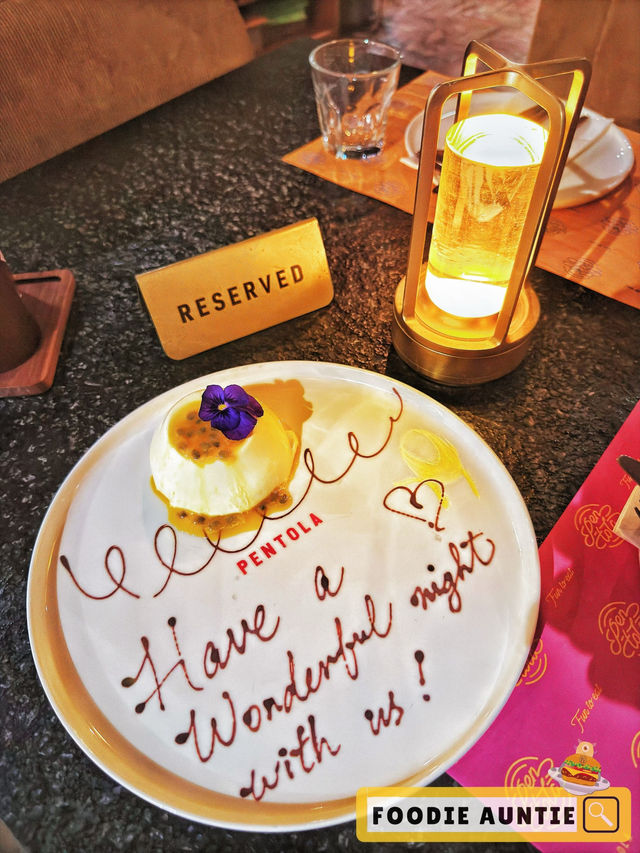 RESERVED
PENTOLA
Have a
Wonderful night
with us!
FOODIE AUNTIE